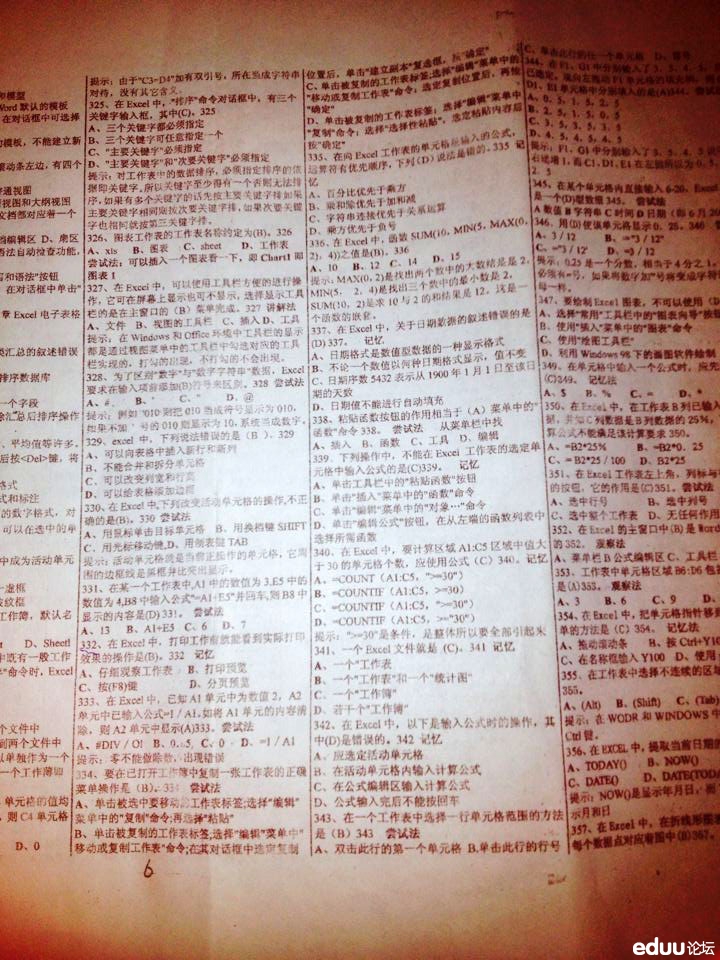 和模型
Word 默认的模板
在对话框中可选择
的模板，不能建新
滚动条左边，有四个
普通视图
视图和大纲视图
文档都对应着一个
档编辑区 D、隶区
语法自动检查功能，
写和语法"按钮
在对话框中单击"
章 Excel 电子表格
类汇总的叙述错误
排序数据库
一个字段
除汇总后排序操作
、平均值等许多。
后按<Del>键，将
格式
式和标注
的数字格式，对
可以在选中的单
中成为活动单元
一虚框
按纹框
工作簿，默认名
t D、Sheetl
中既有一般工作
"命令时，Excel
个文件中
到两个文件中
以单独作为一个
一个工作薄即
单元格的值均
，则 C4 单元格
D、0
提示：由于"C3=D4"加有双引号，所在当成字符串
对待，没有其它含义。
325、在 Excel 中，"排序"命令对话框中，有三个
关键字输入框，其中(C)。325
A、三个关键字都必须指定
B、三个关键字可任意指定一个
C、"主要关键字"必须指定
D、"主要关键字"和"次要关键字"必须指定
提示：对工作表中的数据排序，必须指定排序的依
据即关键字,所以关键字至少得有一个否则无法排
序,如果有多个关键字的话先按主要关键字排如果
主要关键字相同则按次要关键字排,如果次要关键
字也相同就按第三关键字排。
326、图表工作表的工作表名称约定为(B)。326
A、xls B、图表 C、sheet D、工作表
尝试法：可以插入一个图表看一下，即 Chart1 即
图表 1
327、在 Excel 中，可以使用工具栏方便的进行操
作，它可在屏幕上显示也可不显示，选择显示工具
栏的是在主窗口的（B）菜单完成。327 讲解法
A、文件 B、视图的工具栏 C、插入D、工具
提示：在 Windows 及 Office 环境中工具栏的显示
都是通过视图菜单中的工具栏中勾选对应的工具
栏实现的，打勾的出现，不打勾的不会出现。
328、为了区别"数字"与"数字字符串"数据，Excel
要求在输入项前添加(B)符号来区别。328 尝试法
A、# B、' C、" D、@
提示：例如'010 则把 010 当成符号显示为 010，
如果不加 ' 号的 010 则显示为 10，系统当成数字。
329、excel 中，下列说法错误的是（B）、329
A、可以向表格中插入新行和新列
B、不能合并和拆分单元格
C、可以改变列宽和行高
D、可以给表格添加边框
330、在 Excel 中,下列改变活动单元格的操作,不正
确的是(B)。330 尝试法
A、用鼠单击目标单元格 B、用换档键 SHIFT
C、用光标移动键，D、用制表键 TAB
提示：活动单元格就是当前正操作的单元格，它周
围的边框线是黑框并比突出显示。
331、在某一个工作表中,A1 中的数值为 3,E5 中的
数值为 4,B8 中输入公式"=A1+E5"并回车,则 B8 中
显示的内容是(D)331。尝试法
A、13 B、A1+E5 C、6 D、7
332、在 Excel 中，打印工作前就能看到实际打印
效果的操作是(B)。332 记忆
A、仔细观察工作表 B、打印预览
C、按(F8)键 D、分页预览
333、在 Excel 中，已知 A1 单元中为数值 2，A2
单元中已输入公式=1/A1,如将 A1 单元的内容清
除，则 A2 单元中显示(A)333。尝试法
A、#DIV/O! B、0.5、C、0 D、=1/A1
提示：零不能做除数，出现错误
334、要在已打开工作簿中复制一张工作表的正确
菜单操作是（B）。334 尝试法
A、单击被选中要移动的工作表标签;选择"编辑"
菜单中的"复制"命令;再选择"粘贴"
B、单击被复制的工作表标签;选择"编辑"菜单中"
移动或复制工作表"命令;在其对话框中选定复制
位置后，单击"建立副本"复选框，按"确定"
C、单击被复制的工作表标签;选择"编辑"菜单中的
"移动或复制工作表"命令；选定复制位置后，再按
"确定"
D、单击被复制的工作表标签；选择"编辑"菜单中
"复制"命令；选择"选择性粘贴"，选定粘贴内容后
按"确定"
335、在向 Excel 工作表的单元格里输入的公式，
运算符有优先顺序，下列(D)说法是错的。335 记
忆
A、百分比优先于乘方
B、乘和除优先于加和减
C、字符串连接优先于关系运算
D、乘方优先于负号
336、在 Excel 中，函数 SUM(10，MIN(5，MAX(0，
2)，4))之值是(B)。336
A、10 B、12 C、14 D、15
提示：MAX(0，2)是找出两个数中的大数结是是 2，
MIN(5，2，4)是找出三个数中的最小数是 2，
SUM(10，2)是求 10 与 2 的和结果是 12。这是一
个函数的嵌套。
337、在 Excel 中，关于日期数据的叙述错误的是
(D)337。记忆
A、日期格式是数值型数据的一种显示格式
B、不论一个数值以何种日期格式显示，值不变
C、日期序数 5432 表示从 1900 年 1 月 1 日至该日
期的天数
D、日期值不能进行自动填充
338、粘贴函数按钮的作用相当于（A）菜单中的"
函数"命令 338。尝试法 从菜单栏中找
A、插入 B、函数 C、工具 D、编辑
339、下列操作中，不能在 Excel 工作表的选定单
元格中输入公式的是(C)339。记忆
A、单击工具栏中的"粘贴函数"按钮
B、单击"插入"菜单中的"函数"命令
C、单击"编辑"菜单中的"对象…"命令
D、单击"编辑公式"按钮，在从左端的函数列表中
选择所需函数
340、在 Excel 中，要计算区域 A1:C5 区域中值大
于 30 的单元格个数，应使用公式（C）340。记忆
A、=COUNT（A1:C5，">=30"）
B、=COUNTIF（A1:C5，>=30）
C、=COUNTIF（A1:C5，">=30"）
D、=COUNT（A1:C5，>=30）
提示：">=30"是条件，是整体所以要全部引起来
341、一个 Excel 文件就是 (C)。341 记忆
A、一个"工作表
B、一个"工作表"和一个"统计图"
C、一个"工作簿"
D、若干个"工作簿"
342、在 Excel 中，以下是输入公式时的操作，其
中(D)是错误的。342 记忆
A、应选定活动单元格
B、在活动单元格内输入计算公式
C、在公式编辑区输入计算公式
D、公式输入完后不能按回车
343、在一个工作表中选择一行单元格范围的方法
是（B）343 尝试法
A、双击此行的第一个单元格 B.单击此行的行号
C、单击此行的任一个单元格
D1、E1 单元格中分别填入的是(A)344。尝试法
A、0.5，1，5，2，5
提示：F1，G1 中分别输入了 3.5，4.5
345、在某个单元格内直接输入 6-20，Excel
是一个(D)型数据 345。尝试法
A 数值 B 字符串 C 时间 D 日期（即 6月 20
346、用(D)使该单元格显示 0.25。346
A、3 / 12 B、="3 / 12"
C、="3 / 12" D、=3 / 12
提示：0.25 是一个分数，相当于 4 分之 1，
必须有=号，如果将数字加"号将变成字符
号一样。
347、要绘制 Excel 图表，不可以使用（D
A、选择"常用"工具栏中的"图表向导"按钮
B、使用"插入"菜单中的"图表"命令
C、使用"绘图工具栏"
D、利用 Windows 98 下的画图软件绘制
349、在单元格中输入一个公式时，应先
(C)349。记忆法
A、$ B、% C、= D、*
350、在 Excel 中，在工作表 B 列已输入
据，并知 C 列数据是 B 列数据的 25%，
算公式不能满足该计算要求 350。
A、=B2*25% B、=B2*0. 25
C、=B2*25 / 100 D、B2*25
351、在 Excel 工作表左上角，列标与
的按钮，它的作用是(C)351。尝试法
A、选中行号 B、选中列号
C、选中整个工作表 D、无任何作用
352、在 Excel 的主窗口中(B)是 Word
的 352。观察法
A、菜单栏 B 公式编辑区 C、工具栏
353、工作表中单元格区域 B6:D6 包
是(A)353。观察法
A、3 B、6 C、9 D、
354、在 Excel 中，把单元格指针移到
单的方法是（C）354。记忆法
A、拖动滚动条 B、按 Ctrl+Y10
C、在名称框输入 Y100 D、使用
355、在工作表中选择不连续的区域
355。
A、(Alt) B、(Shift) C、(Tab)
提示：在 WODR 和 WINDOWS 中
Ctrl 键。
356、在 EXCEL 中，提取当前日期
A、TODAY() B、NOW()
C、DATE() D、DATE(TOD
提示：NOW()是显示年月日，而
示月和日
357、在 Excel 中，在折线形图表
每个数据点对应着图中(B)367。
6
eduu论坛